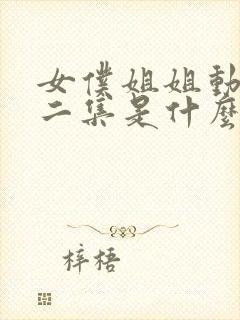 女僕姐姐動
二集是什麼
梓梧